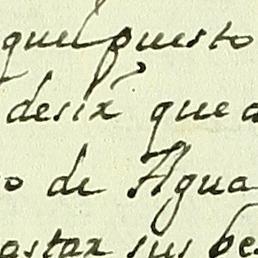 quel puesto
desir que a
o de Agua
astar sus be